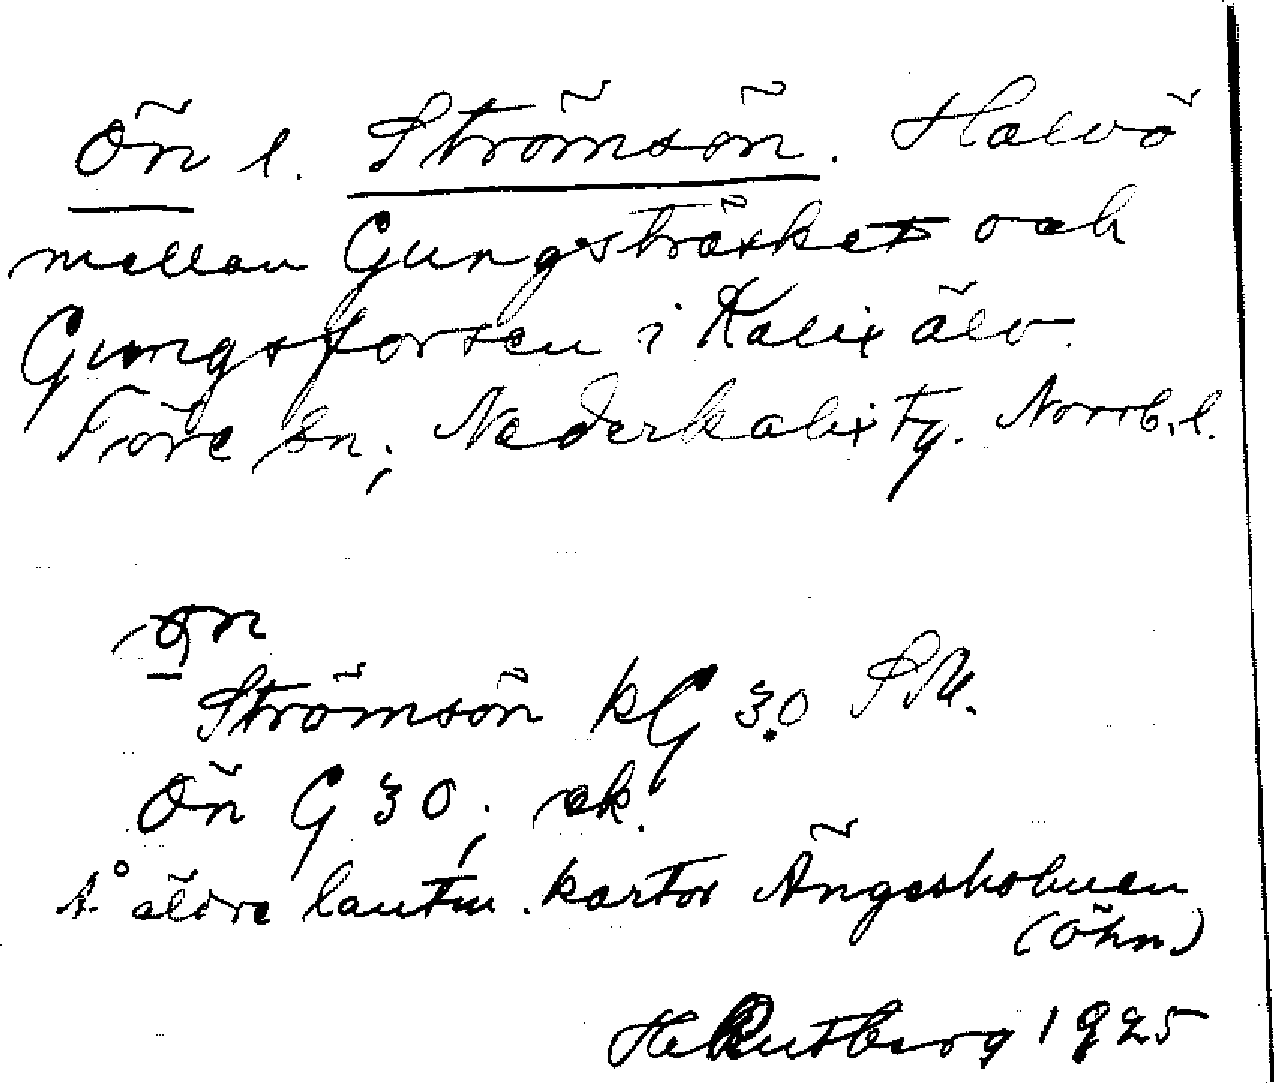 Ön l. Strömsön. Halvö
mellan Gungsträsket och
Gungsforsen i Kalix älv.
Töre sn; Nederkalix tg. Norrb. l.
Strömsön kG 30 SM.
Ön G 30; ek.
Å äldre lantm. kartor Ängesholmen
(Öhn)
HeRutberg 1925